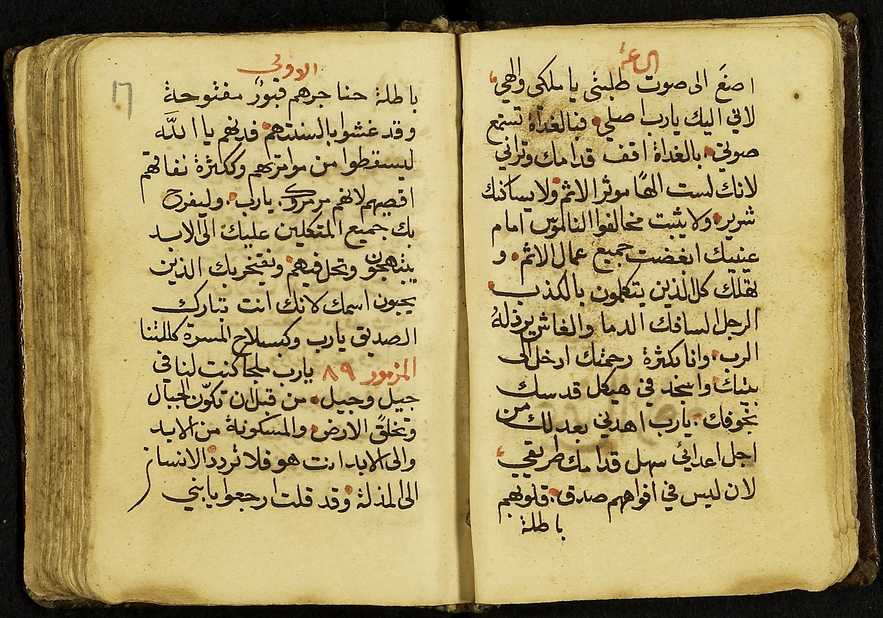 الساعة
اصغَ الى صوت طلبتى يا ملكى والهي
لانى اليك يارب اصلى فبالغداة تستمع
صوتى بالغداة اقف قدامك وترانى
لانك لست الهًا موثر الاثم ولا يساكنك
شرير ولا يثبت مخالفوا الناموس امام
عينيك ابغضت جميع عمال الاثم و
تهلك كل الذين يتكلمون بالكذب
الرجل السافك الدما والغاش يرذلهُ
الرب وانا بكثرة رحمتك ادخل الى
بيتك واسجد في هيكل قدسك
بخوفك يارب اهدنى بعدلك من
اجل اعدائي سهل قدامك طريقي
لان ليس في افواههم صدق قلوبهم
باطلة
الاولى
17
باطلة حناجرهم قبورٌ مفتوحة
وقد غشوا بالسنتهم فدنهم يا اللَّه
ليسقطوا من موامرتهم وككثرة نفاقهم
اقصيهم لانهم مرمروك يارب وليفرح
بك جميع المتكلين عليك الى الابد
يبتهجون وتحل فيهم ويفتخر بك الذين
يحبون اسمك لانك انت تبارك
الصديق يارب وكسلاح المسرة كللتنا
المزمور ٨٩ يارب ملجا كنت لنا في
جيل وجيل من قبل ان تكوّن الجبال
وتخلق الارض والمسكونة من الابد
والى الابد انت هو فلا ترد الانسان
الى المذلة وقد قلت ارجعوا يا بني